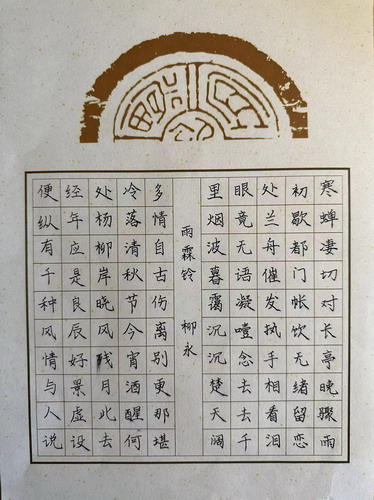 寒蝉凄切对长亭晚骤雨
初歇都门帐饮无绪留恋
处兰舟催发执手相看泪
眼竟无语凝噎念去去千
里烟波暮霭沉沉楚天阔
雨霖铃 柳永
多情自古伤离别更那堪
冷落清秋节今宵酒醒何
处杨柳岸晓风残月此去
经年应是良辰好景虚设
便纵有千种风情与人说